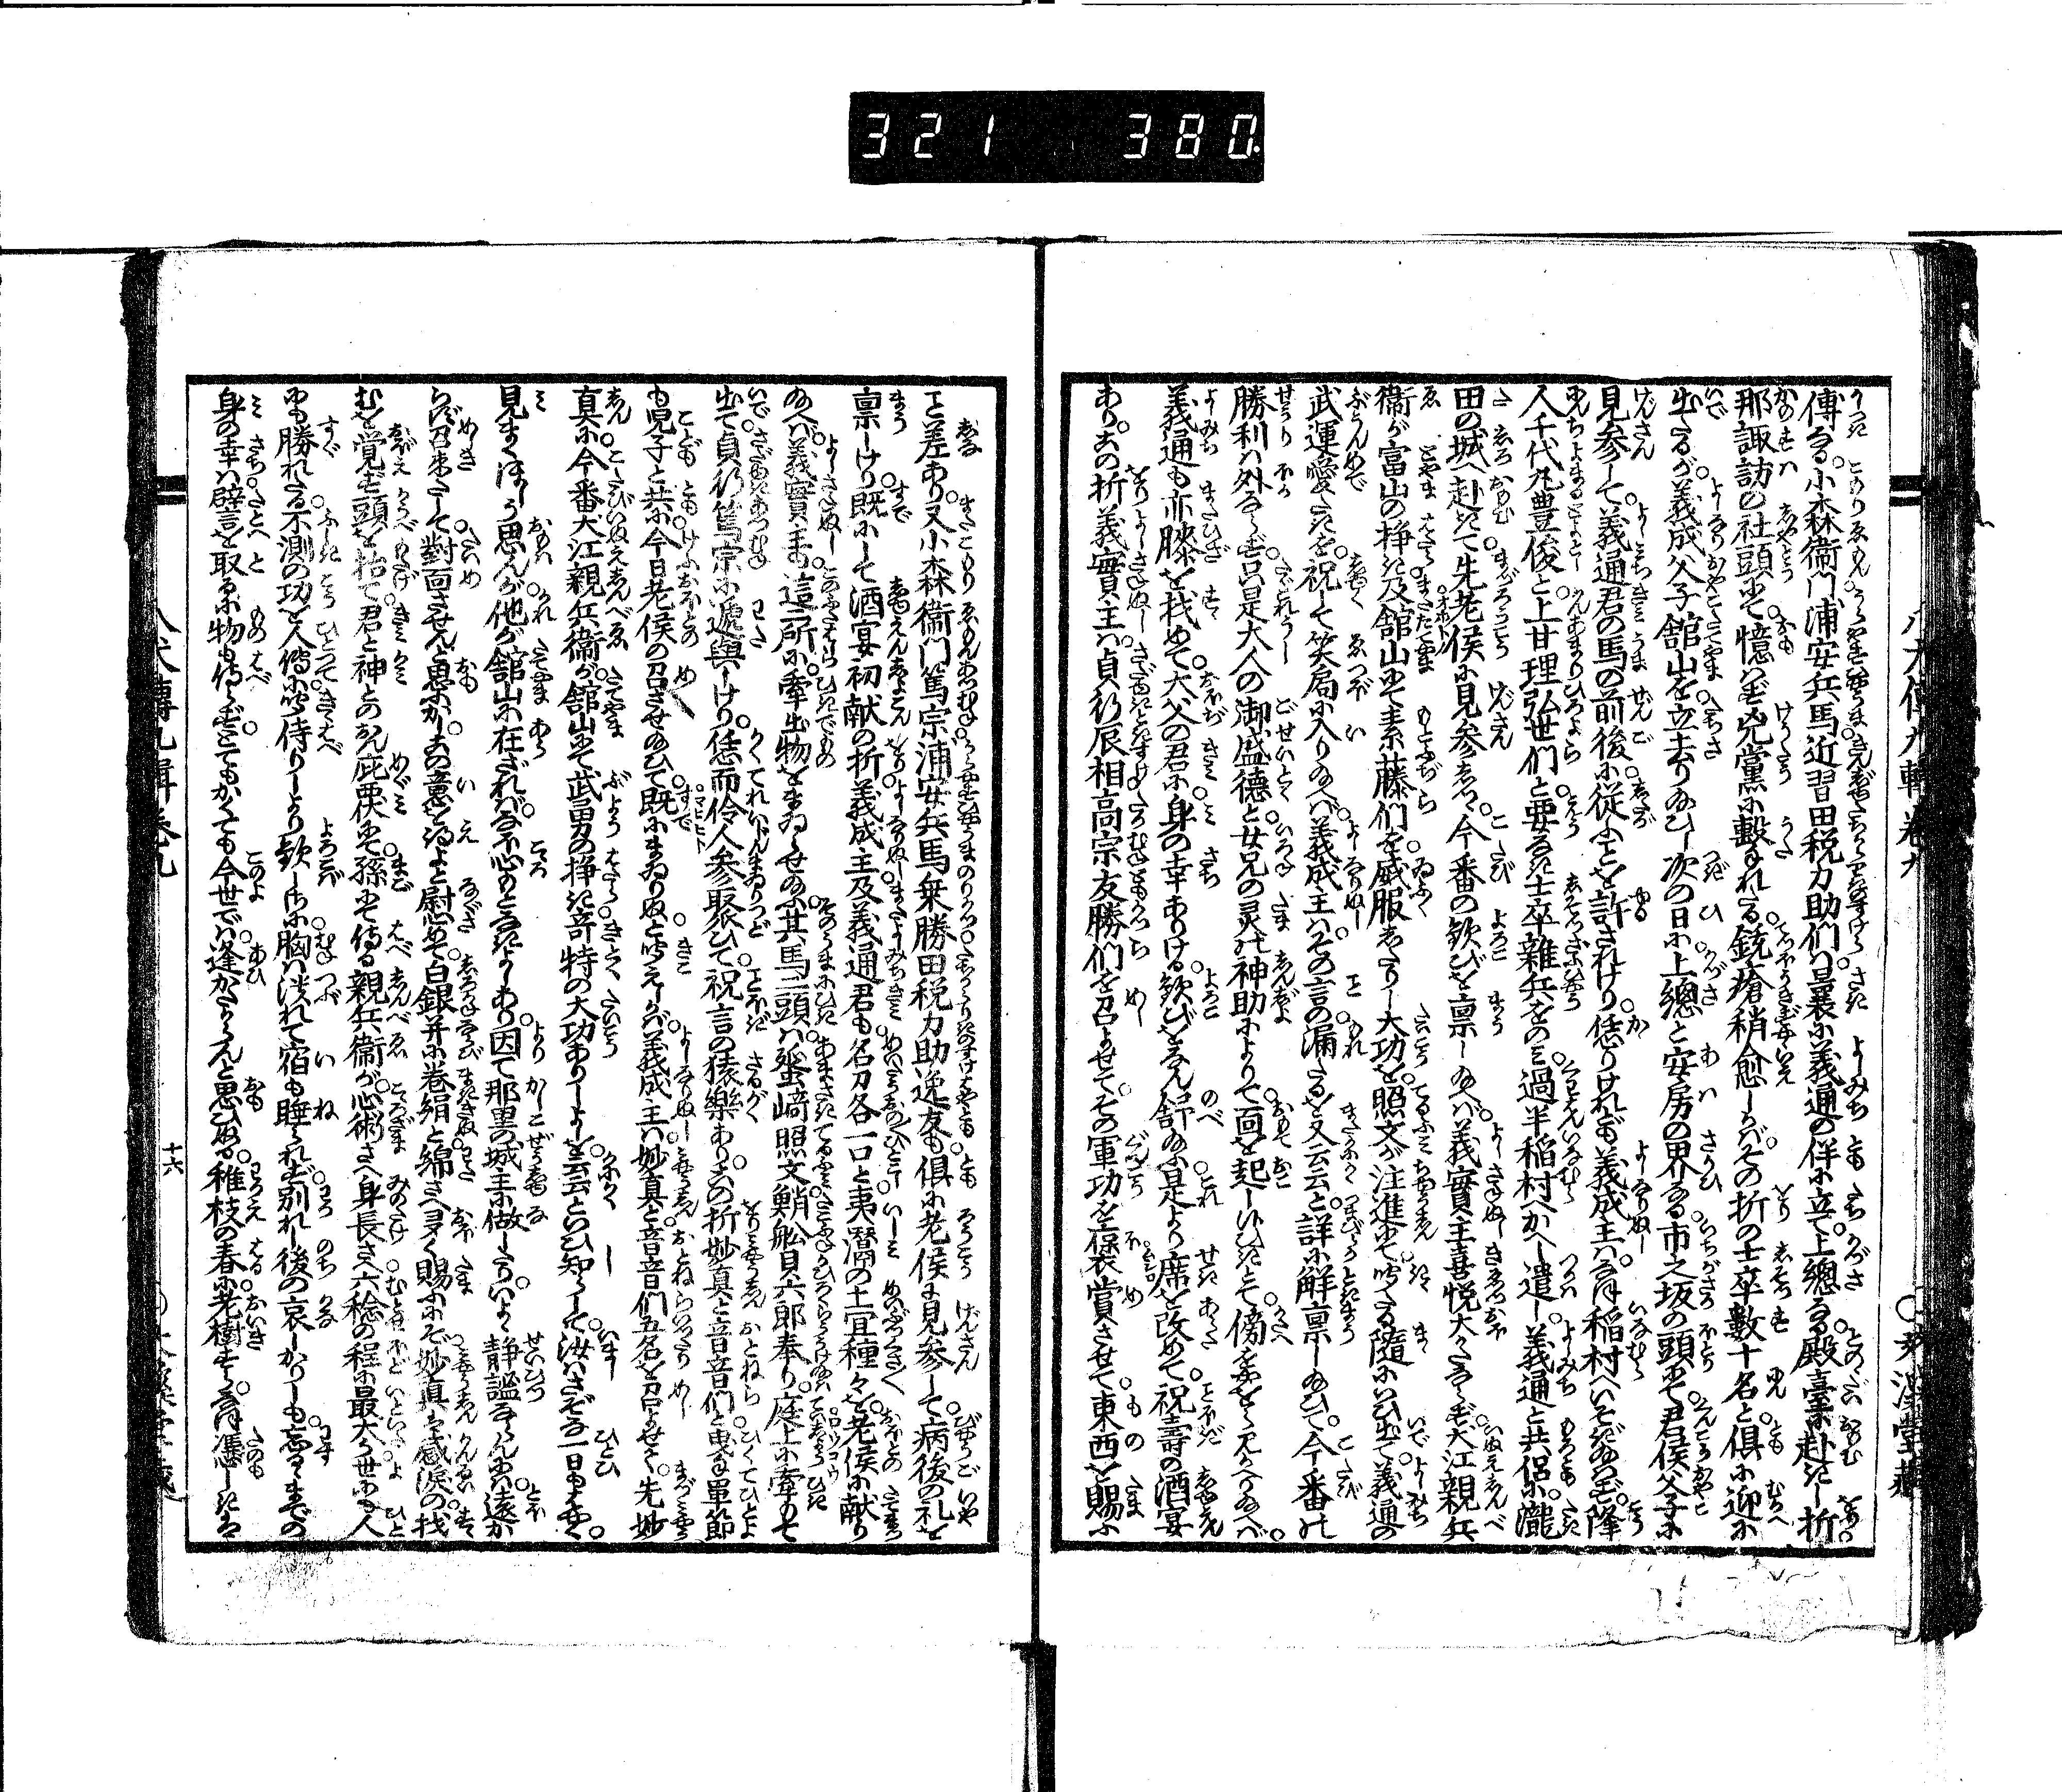 321 380
八犬傳九輯卷九
傳なる。小森衞門浦安兵馬近習田税力助們は曩に義通の伴に立て上總なる殿臺に赴きし折
那諏訪の社頭にて憶はず兇黨に轂れたる銃瘡稍愈しかばその折の士卒數十名と倶に迎に
出たるが義成父子舘山を立去り給ひし次の日に上總と安房の界なる市之坂の頭にて君侯父子に
見參して義通君の馬の前後に從ふことを許されけり恁りけれども義成主はなほ稲村へいそがぬのず降
人千代丸豊俊と上甘理弘世們と要なき士卒雜兵をのみ過半稲村へかへし遣し義通と共侶に瀧
田の城へ赴きて先老侯に見參しつ今番の歓びを稟し給へば義實主喜悦大かたならず犬江親兵
衞が富山の挣き及舘山にて素藤們を威服したりし大功を照文が注進にて听たる隨にいひ出て義通の
武運愛たきを祝して笑局に入り給へば義成主はその言の漏たるを又云云と詳に解稟し給ひて今番の
勝利は外ならず是大人の御盛德と女兄の灵の神助によりて面を起し侍ひきとて傍をかへりみ給へば
義通も亦膝を找めて大父の君に身の幸ありける歓びをなん舒給ふ是より席を改めて祝壽の酒宴
ありこの折義實主は貞行辰相高宗友勝們を召よせてその軍功を褒賞させて東西を賜ふ
こと差あり又小森衞門篤宗浦安兵馬乗勝田税力助逸友も倶に老侯に見參して病後の礼を
稟しけり既にして酒宴初献の折義成主及義通君も名刀各一口と夷㵎の土宜種々を老侯に献り
給へば義實主も這一所に牽出物をまゐらせ給ふ其馬二頭は蜑﨑照文鮹舩貝六郎奉り庭上に牽もて
出て貞行篤宗に遞與しけり恁而伶人參聚ひて祝言の猿樂ありこの折妙眞と音音們と曳手單節
も児子と共に今日老侯の召させ給ひて既にまゐりぬと听えしかば義成主は妙眞と音音們五名を召よせて先妙
眞に今番犬江親兵衞が舘山にて武勇の挣き竒特の大功ありしよしを云云といひ知らして汝はさぞな一日もはやく
見まくほしう思んが他が舘山に在ざれば不心もとなきよしあり因て那里の城主に做したりいよゝ靜謐ならんには遠か
らず召来たして對面させんと思ふかしこの意を得よと慰めて白銀并に卷絹と綿さへ多く賜ふにぞ妙眞は感涙の找
むを覚ず頭を抬て君と神とのおん庇廕にて孫にて侍る親兵衞が心術さへ身長さへ六稔の程に最大う世に人
にも勝れたる不測の功を人傳に听侍りしより歓しきに胸は潰れて宿も睡られず別れし後の哀しかりしも忘るゝまでの
身の幸は譬言を取るに物も侍らずとてもかくても今世では逢がたからんと思ひぬる稚枝の春に老樹すらなほ憑しきは
八犬傳九輯卷九
十六